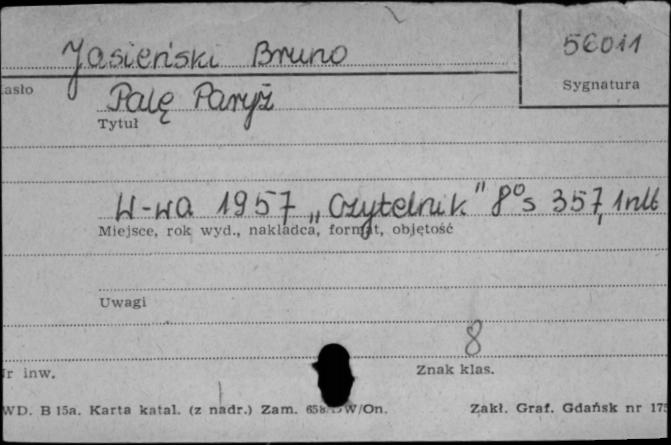 Jasieński Bruno
56011
asło
Sygnatura
Palę Paryż
Tytuł
W-wa 1957 „Czytelnik" 8° s 357, 1nlb
Miejsce, rok wyd., nakładca, format, objętość
Uwagi
8
r inw.
Znak klas.
WD. B 15a. Karta katal. (z nadr.) Zam. W/On.
Zakł. Graf. Gdańsk nr 175